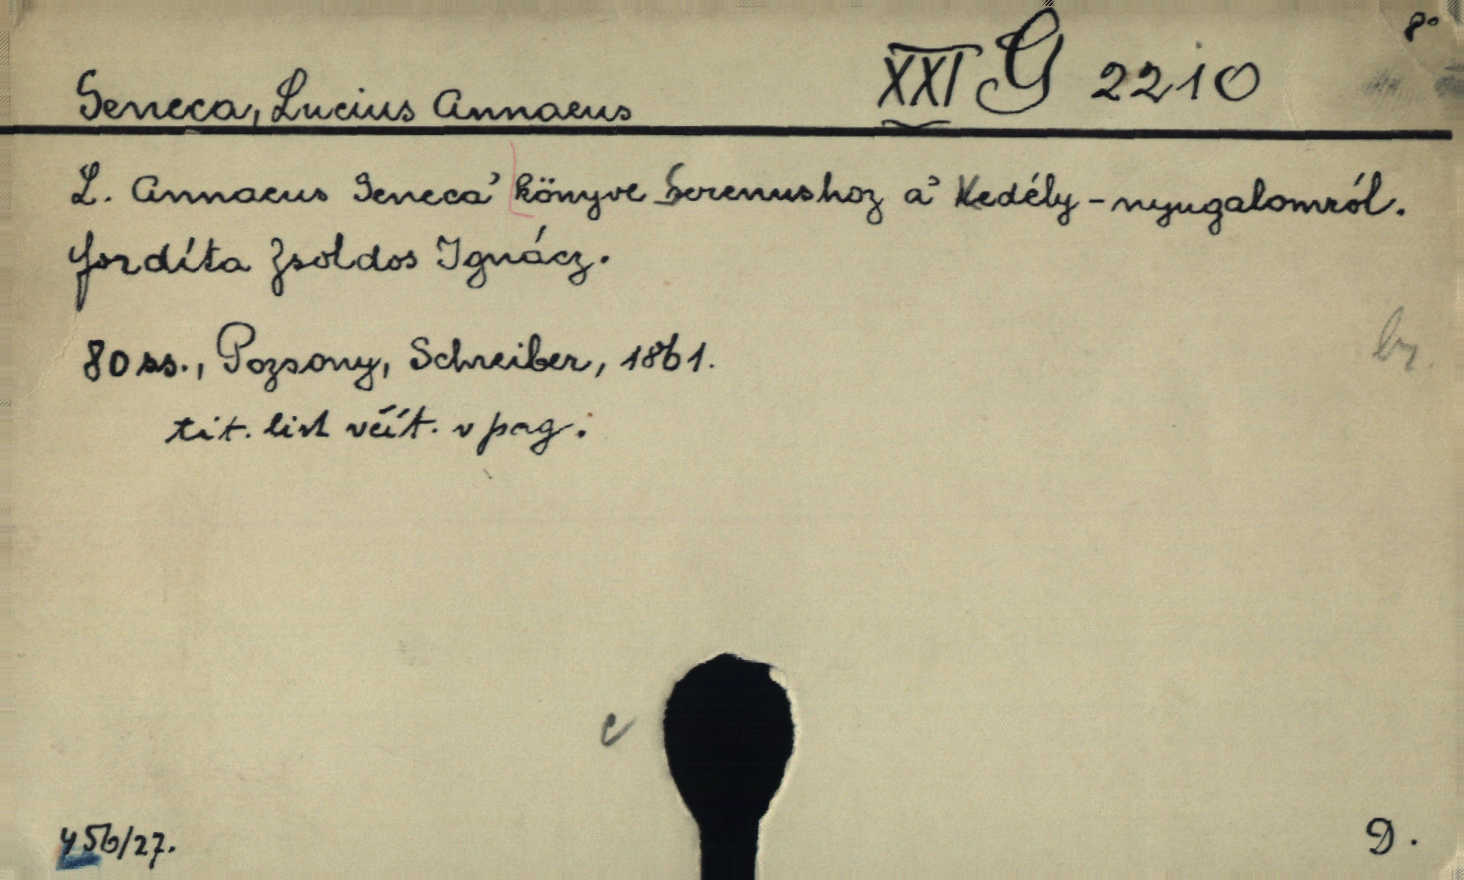 8°
Seneca, Lucius Annaeus XXI G 2210
L. Annaeus Seneca' könyve Serenushoz a' Kedély-nyugalomról.
fordíta Zsoldos Ignácz.
80 ss., Pozsony, Schreiber, 1861.
br.
tit. list včít. v pag.
c
456/27.
D.